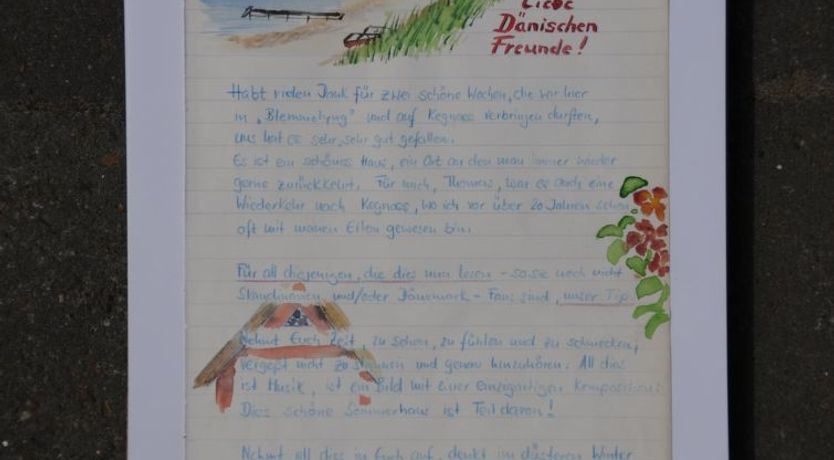 Liebe
Dänischen
Freunde!
Habt vielen Dank für zwei schöne Wochen, die wir hier
in „Blemmelyng" und auf Kegnaes verbringen durften,
uns hat es sehr, sehr gut gefallen.
Es ist ein schönes Haus, ein Ort an den man immer wieder
gerne zurückkehrt. Für mich, Thomas, war es auch eine
Wiederkehr nach Kegnaes, wo ich vor über 20 Jahren schon
oft mit meinen Eltern gewesen bin.
Für all diejenigen, die dies nun lesen - so sie noch nicht
Skandinavien und/oder Dänemark - Fans sind, unser Tip
Nehmt Euch Zeit, zu sehen, zu fühlen und zu schmecken;
vergeßt nicht zu staunen und genau hinzuhören: All dies
ist Musik, ist ein Bild mit einer einzigartigen Komposition:
Dies schöne Sommerhaus ist Teil davon!
Nehmt all dies in Euch auf, denkt im düsteren Winter